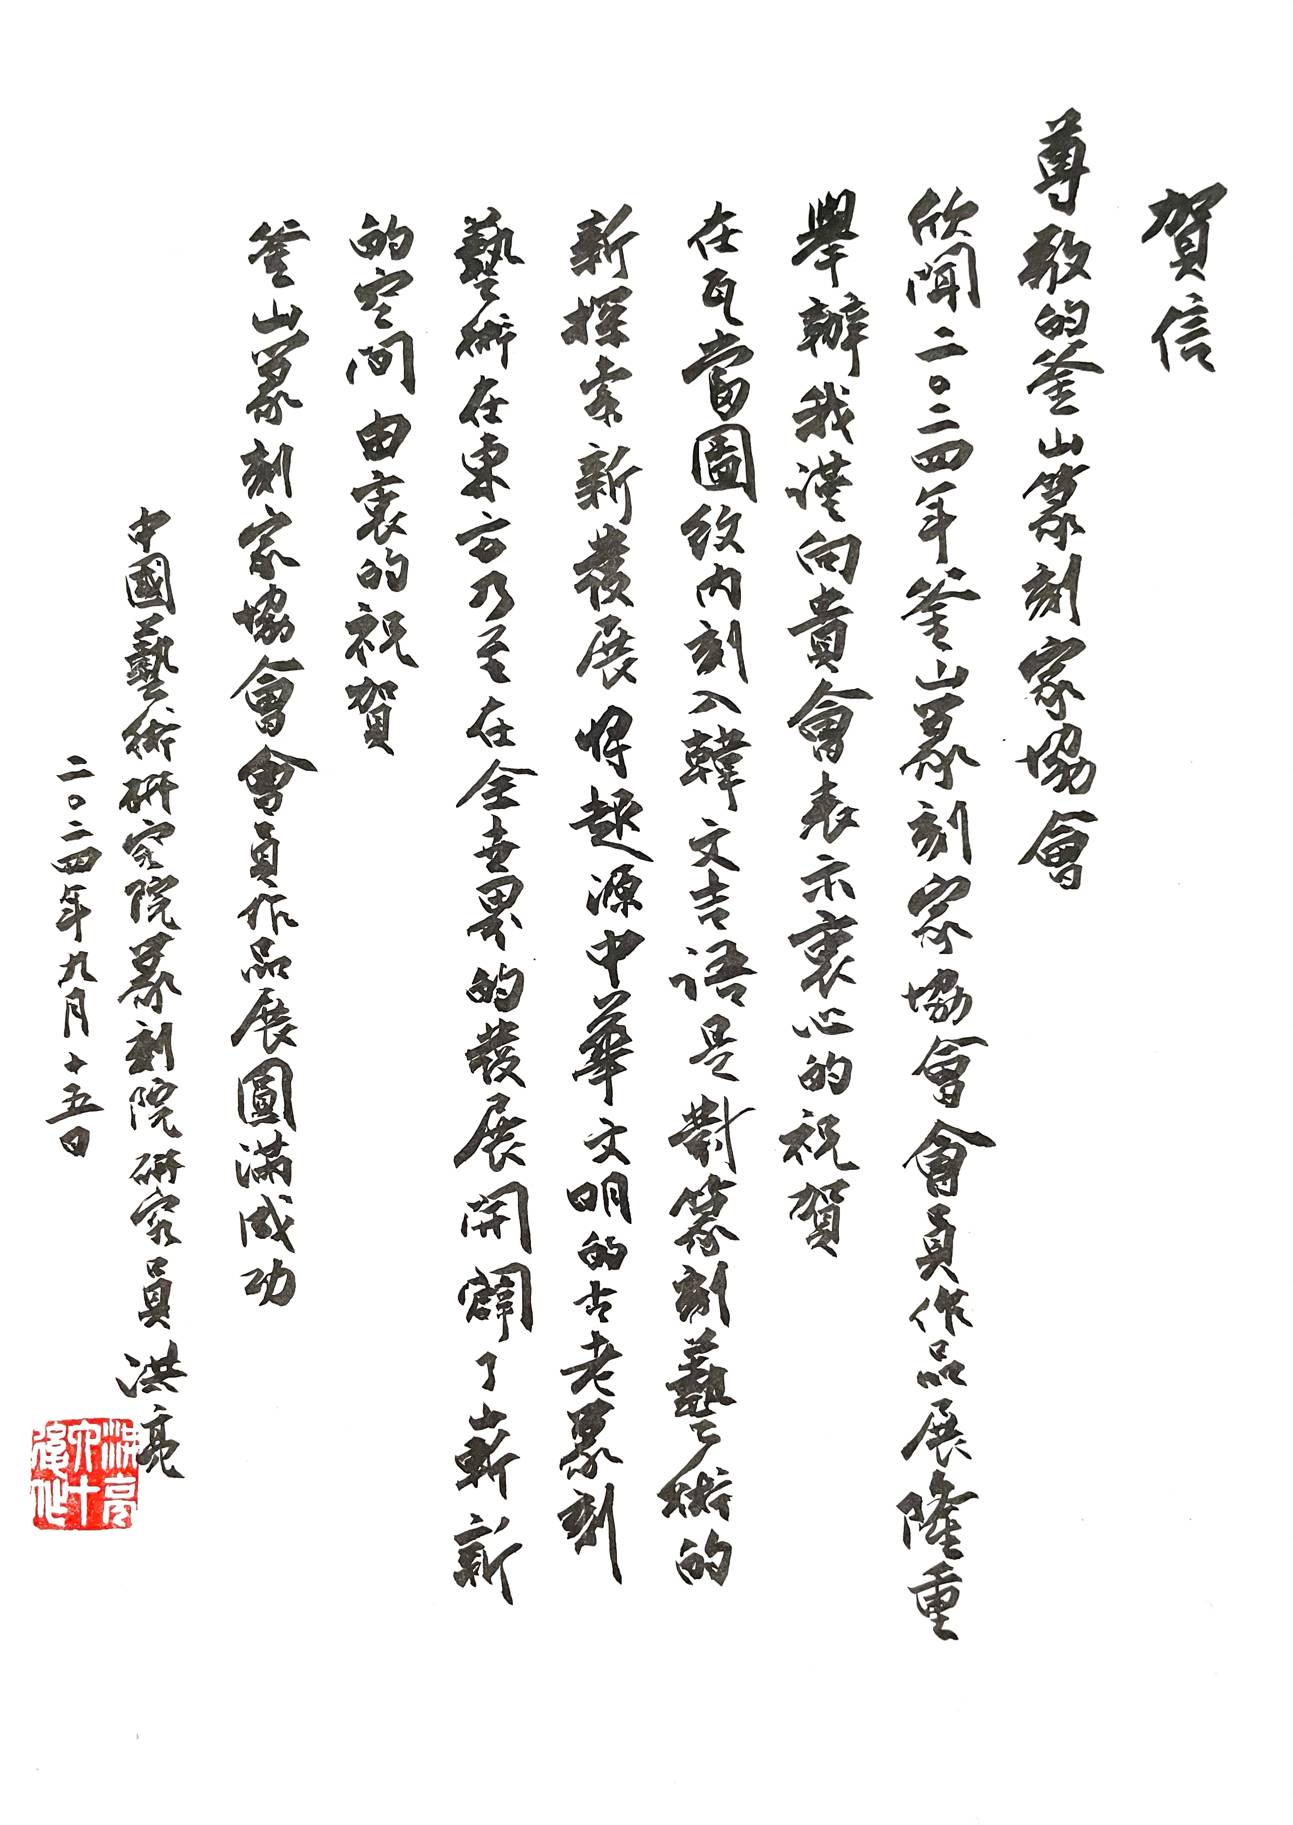 賀信
尊敬的釜山篆刻家協會
欣聞二〇二四年釜山篆刻家協會會員作品展隆重
舉辦我謹向貴會表示衷心的祝賀
在瓦當圖紋内刻入韓文吉語是對篆刻藝術的
新探索新發展將起源中華文明的古老篆刻
藝術在東方乃至在全世界的發展開闢了嶄新
的空间由衷的祝賀
釜山篆刻家協會會員作品展圓滿成功
中國藝術研究院篆刻院研究員洪亮
二〇二四年九月十五日
洪亮六十後作